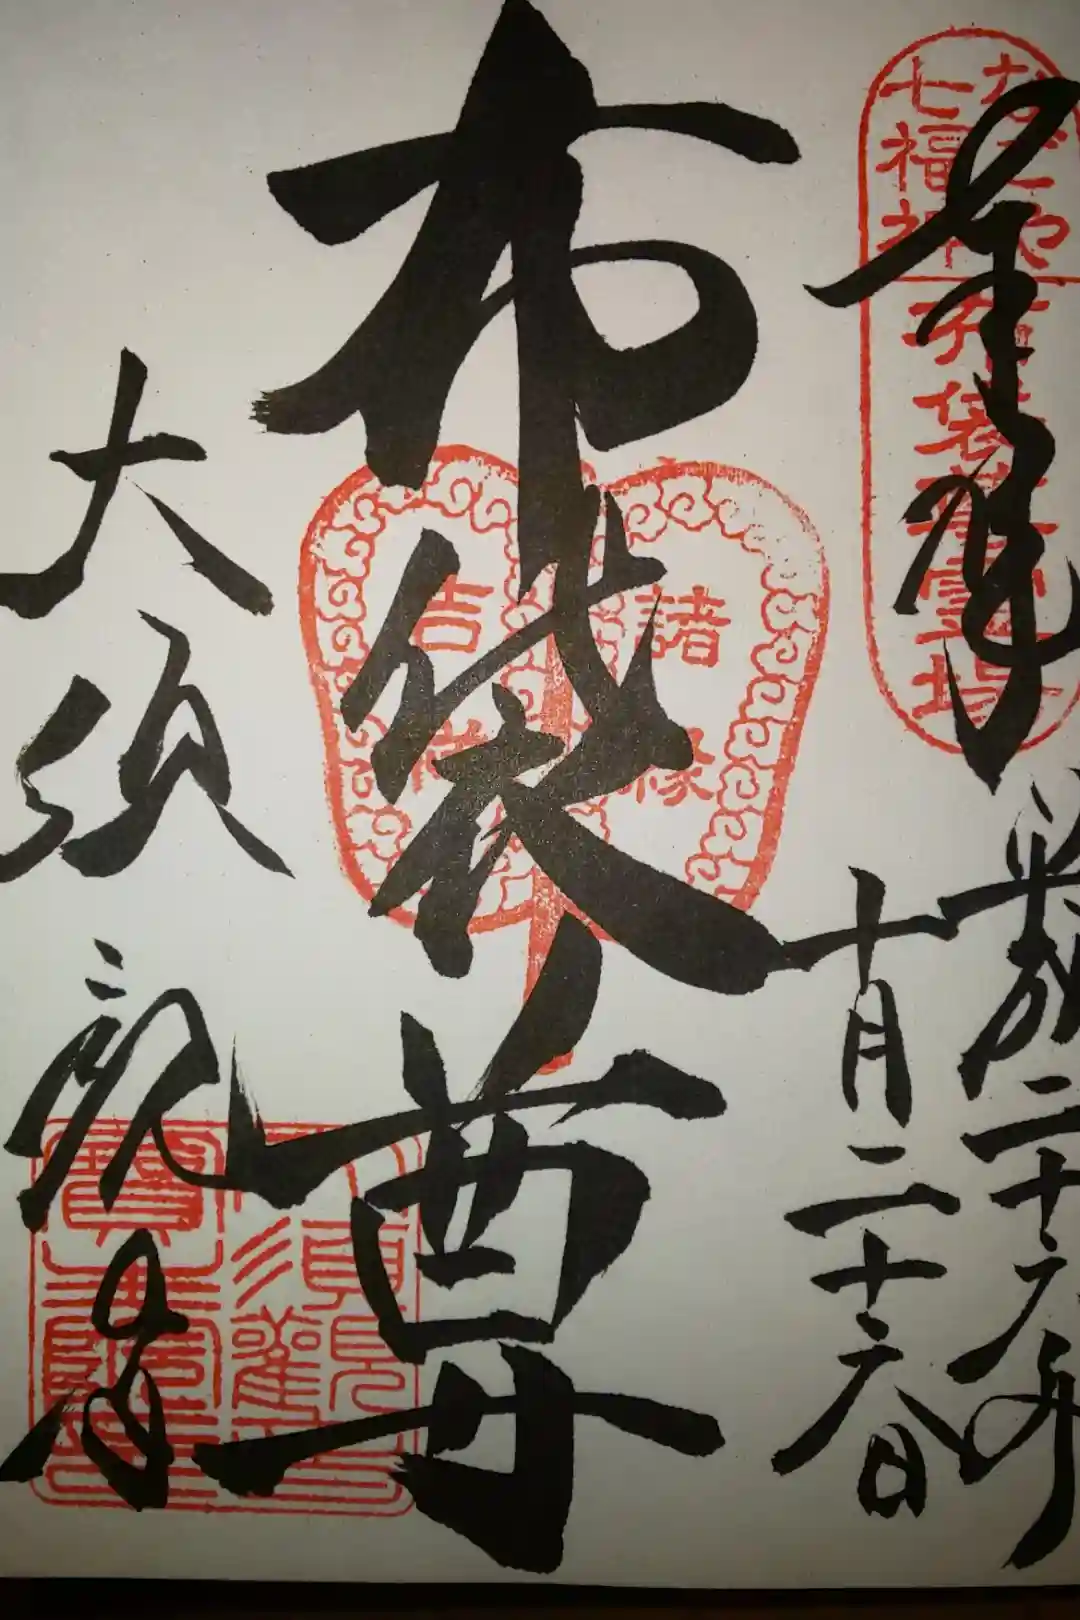 奉拝
平成二十六年
十月二十六日
なごや
七福神
布袋尊霊場
布袋尊
諸縁
吉祥
大須観音